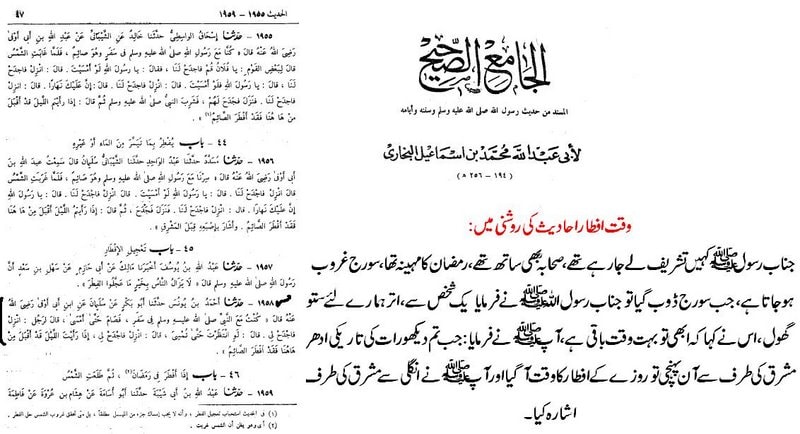 الجامع الصحيح
المسند من حديث رسول الله صلى الله عليه وسلم وسننه وأيامه
لأبي عبد الله محمد بن اسماعيل البخاري
(١٩٤ – ٢٥٦ ه)
وقت افطار احادیث کی روشنی میں:
جناب رسول ﷺ کہیں تشریف لے جا رہے تھے، صحابہ بھی ساتھ تھے، رمضان کا مہینہ تھا، سورج غروب
ہو جاتا ہے، جب سورج ڈوب گیا تو جناب رسول اللہ ﷺ نے فرمایا یک شخص سے، اتر ہمارے لئے ستو
گھول، اس نے کہا کہ ابھی تو بہت وقت باقی ہے، آپ ﷺ نے فرمایا: جب تم دیکھو رات کی تاریکی ادھر
مشرق کی طرف سے آن پہنچی تو روزے کے افطار کا وقت آ گیا اور آپ ﷺ نے انگلی سے مشرق کی طرف
اشارہ کیا۔
الحديث ١٩٥٥ – ١٩٥٩
٤٧
١٩٥٥ – حدثنا إسحاق الواسطي حدثنا خالد عن الشيباني عن عبد الله بن أبي أوفى
رضي الله عنه قال « كنا مع رسول الله صلى الله عليه وسلم في سفر وهو صائم ، فلما غابت الشمس
قال لبعض القوم : يا فلان قم فاجدح لنا ، فقال : يا رسول الله لو أمسيت . قال : انزل فاجدح
لنا . قال : يا رسول الله فلو أمسيت . قال : انزل فاجدح لنا . قال : إن عليك نهارا . قال : انزل
فاجدح لنا . فنزل فجدح لهم ، فشرب النبي صلى الله عليه وسلم ثم قال : إذا رأيتم الليل قد أقبل
من ها هنا فقد أفطر الصائم
٤٤ – باب يفطر بما تيسر من الماء أو غيره
١٩٥٦ – حدثنا مسدد حدثنا عبد الواحد حدثنا الشيباني سليمان قال سمعت عبد الله بن
أبي أوفى رضي الله عنه قال « سرنا مع رسول الله صلى الله عليه وسلم وهو صائم ، فلما غربت الشمس
قال : انزل فاجدح لنا . قال : يا رسول الله لو أمسيت . قال : انزل فاجدح لنا . قال : يا رسول الله
إن عليك نهارا . قال : انزل فاجدح لنا . فنزل فجدح ، ثم قال : إذا رأيتم الليل أقبل من ها هنا
فقد أفطر الصائم . وأشار بإصبعه قبل المشرق »
٤٥ – باب تعجيل الإفطار
١٩٥٧ – حدثنا عبد الله بن يوسف أخبرنا مالك عن أبي حازم عن سهل بن سعد أن
رسول الله صلى الله عليه وسلم قال « لا يزال الناس بخير ما عجلوا الفطر »
١٩٥٨ – حدثنا أحمد بن يونس حدثنا أبو بكر عن سليمان عن ابن أبي أوفى رضي الله
عنه قال « كنت مع النبي صلى الله عليه وسلم في سفر ، فصام حتى أمسى ، قال لرجل : انزل
فاجدح لي . قال : لو انتظرت حتى تمسي ، قال : انزل فاجدح لي ، إذا رأيت الليل قد أقبل من
هاهنا فقد أفطر الصائم »
٤٦ – باب إذا أفطر في رمضان ثم طلعت الشمس
١٩٥٩ – حدثنا عبد الله بن أبي شيبة حدثنا أبو أسامة عن هشام بن عروة عن فاطمة
(١) في الحديث استحباب تعجيل الفطر ، وأنه لا يجب إمساك جزء من الليل مطلقا ، بل متى تحقق غروب الشمس حل الفطر .